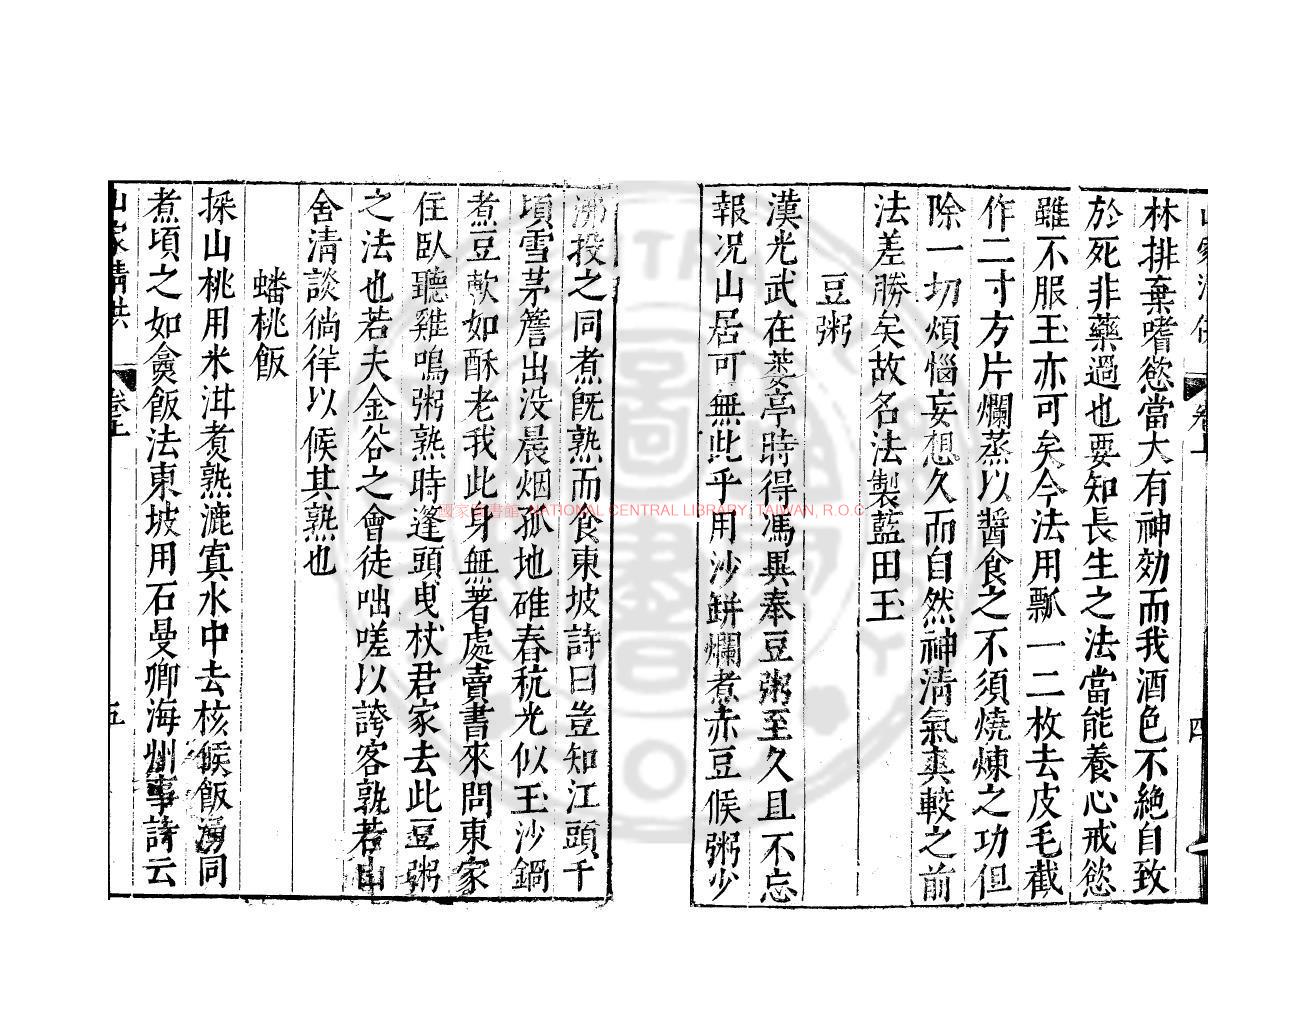 林排棄嗜慾當大有神効而我酒色不絶自致
於死非藥過也要知長生之法當能養心戒慾
雖不服玉亦可矣今法用瓢一二枚去皮毛截
作二寸方片爛蒸以醤食之不須燒煉之功但
除一切煩惱妄想久而自然神清氣爽較之前
法差勝矣故名法製藍田玉
豆粥
漢光武在蔞亭時得馮異奉豆粥至久且不忘
報况山居可無此乎用沙缾爛煮赤豆候粥少
沸投之同煮旣熟而食東坡詩曰豈知江頭千
頃雪茅簷出没晨烟孤地碓舂秔光似玉沙鍋
煮豆軟如酥老我此身無著處賣書來問東家
住臥聽雞鳴粥熟時蓬頭曳杖君家去此豆粥
之法也若夫金谷之會徒咄嗟以誇客孰若山
舍清談徜徉以候其熟也
蟠桃飯
採山桃用米泔煮熟漉寘水中去核候飯湧同
煮頃之如盦飯法東坡用石曼卿海州事詩云
山家清供 卷上 五
國家圖書館 NATIONAL CENTRAL LIBRARY, TAIWAN, R.O.C